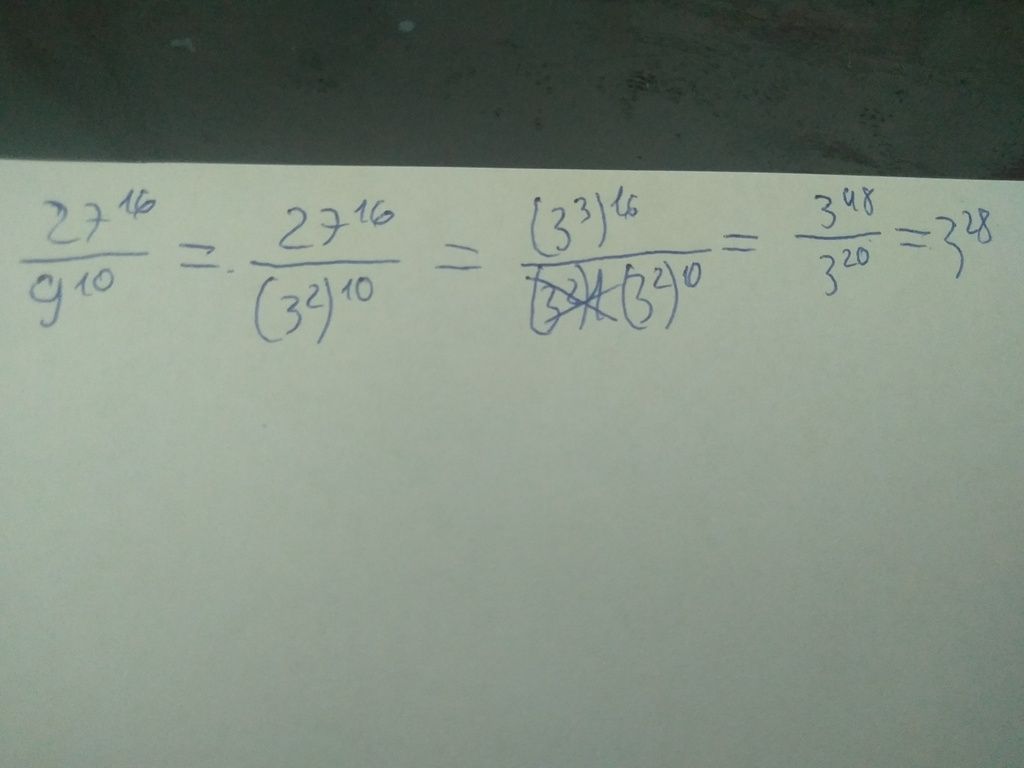 27^16/9^10 = 27^16/(3^2)^10 = (3^3)^16/(3^2)^10 = 3^48/3^20 = 3^28